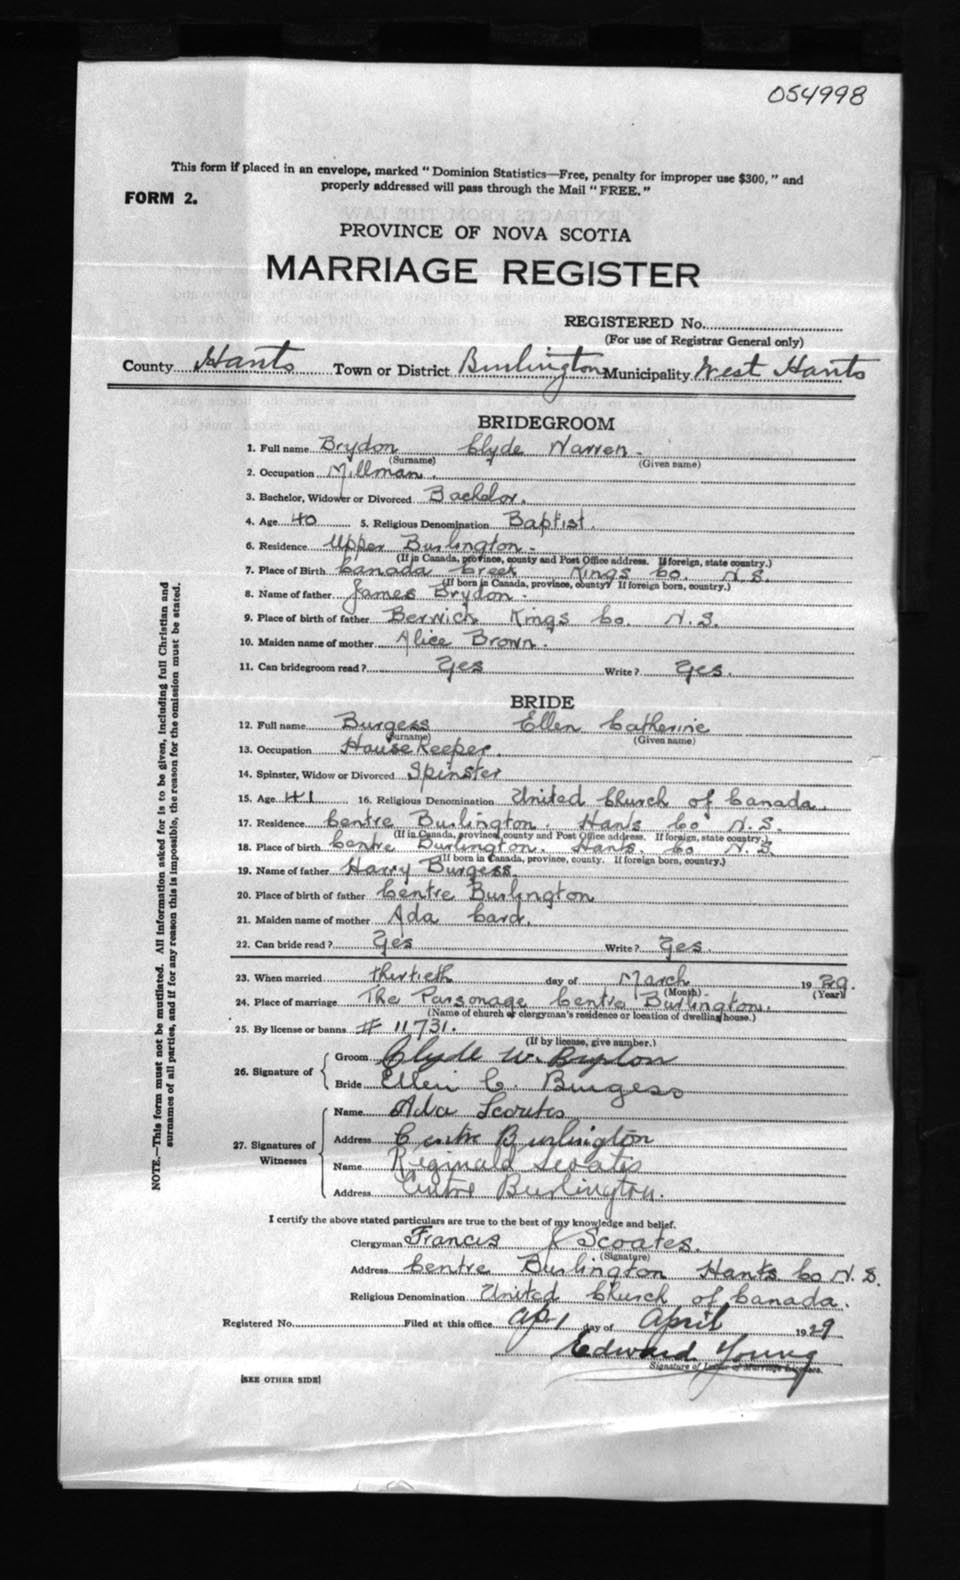 054998
This form if placed in an envelope, marked "Dominion Statistics—Free, penalty for improper use $300," and
properly addressed will pass through the Mail "FREE."
FORM 2.
PROVINCE OF NOVA SCOTIA
MARRIAGE REGISTER
REGISTERED No.
(For use of Registrar General only)
County Hants Town or District Burlington Municipality West Hants
BRIDEGROOM
1. Full name Brydon Clyde Warren.
(Surname) (Given name)
2. Occupation Millman.
3. Bachelor, Widower or Divorced Bachelor.
4. Age 40 5. Religious Denomination Baptist.
6. Residence Upper Burlington.
(If in Canada, province, county and Post Office address. If foreign, state country.)
7. Place of Birth Canada Creek Kings Co. N.S.
(If born in Canada, province, county If foreign born, country.)
8. Name of father James Brydon.
9. Place of birth of father Berwick Kings Co. N.S.
10. Maiden name of mother Alice Brown.
11. Can bridegroom read? Yes Write? Yes.
BRIDE
12. Full name Burgess Ellen Catherine
(Surname) (Given name)
13. Occupation House Keeper.
14. Spinster, Widow or Divorced Spinster
15. Age 41 16. Religious Denomination United Church of Canada.
17. Residence Centre Burlington. Hants Co N.S.
(If in Canada, province, county and Post Office address. If foreign, state country.)
18. Place of birth Centre Burlington. Hants. Co. N.S.
(If born in Canada, province, county. If foreign born, country.)
19. Name of father Harry Burgess.
20. Place of birth of father Centre Burlington
21. Maiden name of mother Ada Card.
22. Can bride read? Yes Write? Yes.
23. When married thirtieth day of March 1929.
(Month) (Year)
24. Place of marriage The Parsonage Centre Burlington.
(Name of church or clergyman's residence or location of dwelling house.)
25. By license or banns # 11,731.
(If by license, give number.)
26. Signature of
Groom Clyde W. Brydon
Bride Ellen C. Burgess
27. Signatures of Witnesses
Name Ada Scoates
Address Centre Burlington
Name Reginald Scoates
Address Centre Burlington.
I certify the above stated particulars are true to the best of my knowledge and belief.
Clergyman Francis J Scoates.
(Signature)
Address Centre Burlington Hants Co N.S.
Religious Denomination United Church of Canada.
Registered No. Filed at this office Ap 1 day of April 1929
Edward Young
Signature of Issuer of Marriage Licenses.
[SEE OTHER SIDE]
NOTE.—This form must not be mutilated. All information asked for is to be given, including full Christian and
surnames of all parties, and if for any reason this is impossible, the reason for the omission must be stated.